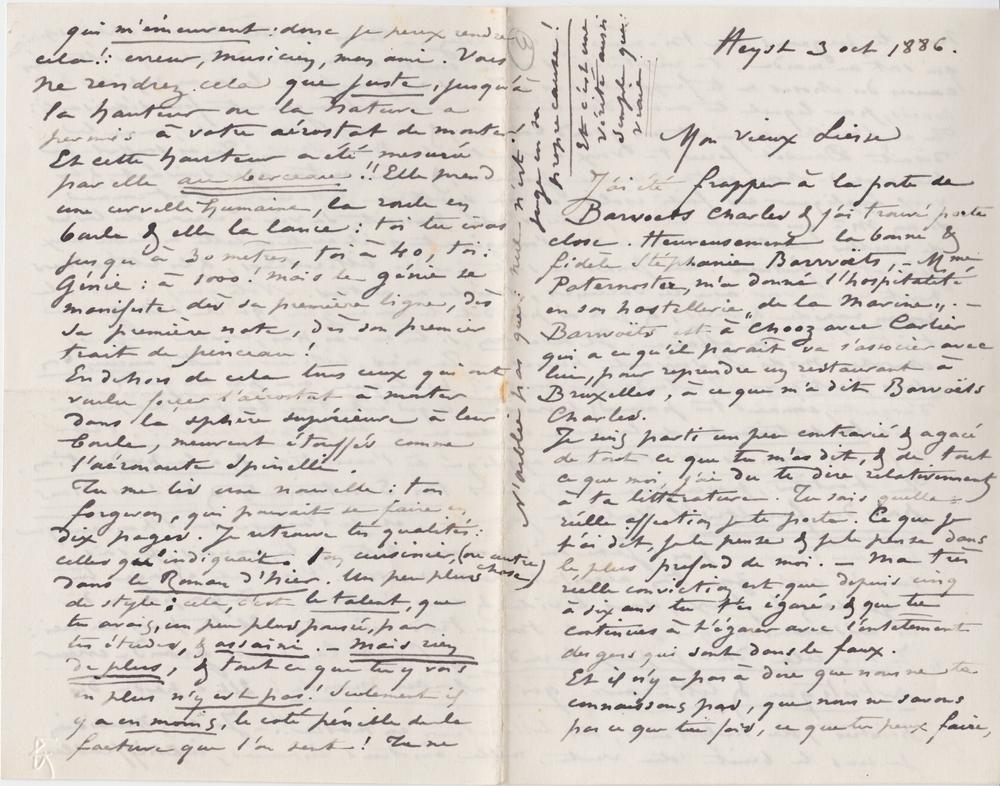 Heyst 3 oct 1886.
Mon vieux Liesse
J'ai été frapper à la porte de
Barvoets Charles & j'ai trouvé porte
close. Heureusement la bonne &
fidèle Stéphanie Barvoëts, – Mme
Paternoster, m'a donné l'hospitalité
en son hostellerie „de la Marine„. –
Barvoëts est à Chooz avec Carlier
qui a ce qu'il parait va s'associer avec
lui, pour reprendre un restaurant à
Bruxelles, à ce que m'a dit Barvoëts
Charles.
Je suis parti un peu contrarié & agacé
de tout ce que tu m'as dit, & de tout
ce que moi, j'ai du te dire relativement
à ta littérature. Tu sais quelle
réelle affection je te porte. Ce que je
t'ai dit, je le pense & je le pense dans
le plus profond de moi. – Ma très
réelle conviction est que depuis cinq
à six ans tu t'es égaré, & que tu
continues à t'égarer avec l'entêtement
des gens qui sont dans le faux.
Et il n'y a pas à dire que nous ne te
connaissons pas, que nous ne savons
pas ce que tu fais, ce que tu peux faire,
qui m'émeuvent: donc je peux rendre
cela!! erreur, musicien, mon ami. Vous
ne rendrez cela que juste, jusqu'à
la hauteur où la nature a
permis à votre aérostat de monter
Et cette hauteur a été mesurée
par elle au berceau!! Elle prend
une cervelle humaine, la roule en
boule & elle la lance: toi tu iras
jusqu'à 30 mètres, toi à 40, toi:
Génie: à 1000! mais le génie se
manifeste dès sa première ligne, dès
sa première note, dès son premier
trait de pinceau!
En dehors de cela tous ceux qui ont
voulu forcer l'aérostat à monter
dans la sphère supérieure à leur
boule, meurent étouffés comme
l'aéronaute Spinelli.
Tu me lis une nouvelle: ton
forgeron, qui pouvait se faire en
dix pages. Je retrouve tes qualités:
celles qu'indiquait ton cuisinier, (ou autre
chose)
dans le Roman d'hier. Un peu plus
de style: cela, c'est le talent, que
tu avais, un peu plus poussé, par
tes études, & assaini. – Mais rien
de plus, & tout ce que tu y vois
en plus n'y est pas! Seulement il
y a en moins, le coté pénible de la
facture que l'on sent! Tu ne
N'oublie pas que: nul n'est
juge en sa
propre cause!
Et c'est une
vérité aussi
simple que
vraie!